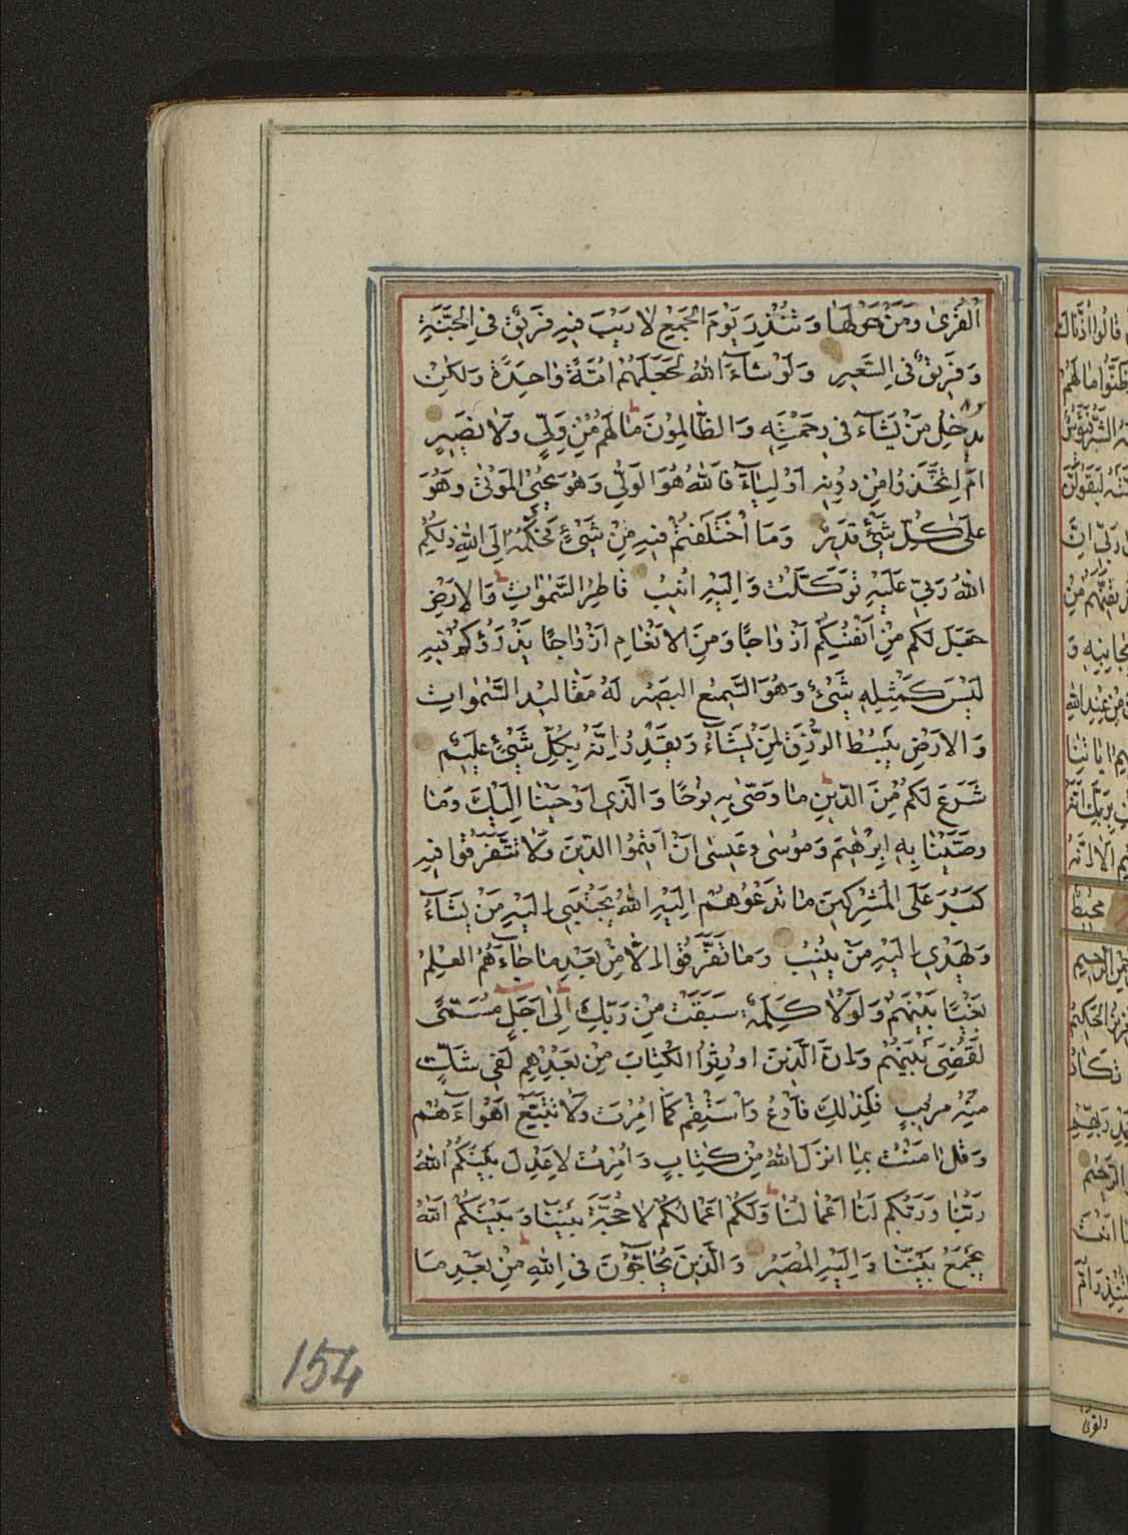 الْقُرٰى وَمَنْ حَوْلَهَا وَتُنْذِرَ يَوْمَ الْجَمْعِ لَا رَيْبَ فِيهِ فَرِيقٌ فِى الْجَنَّةِ
وَفَرِيقٌ فِى السَّعِيرِ وَلَوْ شَآءَ اللهُ لَجَعَلَهُمْ اُمَّةً وٰاحِدَةً وَلٰكِنْ
يُدْخِلُ مَنْ يَشَآءُ فِى رَحْمَتِهِ وَالظّٰالِمُونَ مٰا لَهُمْ مِنْ وَلِىٍّ وَلَا نَصِيرٍ
اَمِ اتَّخَذُوا مِنْ دُونِهِ اَوْلِيٰآءَ فَاللهُ هُوَ الْوَلِىُّ وَهُوَ يُحْيِى الْمَوْتٰى وَهُوَ
عَلٰى كُلِّ شَىْءٍ قَدِيرٌ وَمَا اخْتَلَفْتُمْ فِيهِ مِنْ شَىْءٍ فَحُكْمُهُ اِلَى اللهِ ذٰلِكُمُ
اللهُ رَبِّى عَلَيْهِ تَوَكَّلْتُ وَاِلَيْهِ اُنِيبُ فٰاطِرُ السَّمٰوٰاتِ وَالْاَرْضِ
جَعَلَ لَكُمْ مِنْ اَنْفُسِكُمْ اَزْوٰاجًا وَمِنَ الْاَنْعٰامِ اَزْوٰاجًا يَذْرَؤُكُمْ فِيهِ
لَيْسَ كَمِثْلِهِ شَىْءٌ وَهُوَ السَّمِيعُ الْبَصِيرُ لَهُ مَقٰالِيدُ السَّمٰوٰاتِ
وَالْاَرْضِ يَبْسُطُ الرِّزْقَ لِمَنْ يَشَآءُ وَيَقْدِرُ اِنَّهُ بِكُلِّ شَىْءٍ عَلِيمٌ
شَرَعَ لَكُمْ مِنَ الدِّينِ مٰا وَصّٰى بِهِ نُوحًا وَالَّذِى اَوْحَيْنٰا اِلَيْكَ وَمٰا
وَصَّيْنٰا بِهِ اِبْرٰهِيمَ وَمُوسٰى وَعِيسٰى اَنْ اَقِيمُوا الدِّينَ وَلَا تَتَفَرَّقُوا فِيهِ
كَبُرَ عَلَى الْمُشْرِكِينَ مٰا تَدْعُوهُمْ اِلَيْهِ اللهُ يَجْتَبِى اِلَيْهِ مَنْ يَشَآءُ
وَيَهْدِى اِلَيْهِ مَنْ يُنِيبُ وَمٰا تَفَرَّقُوا اِلّٰا مِنْ بَعْدِ مٰا جٰآءَهُمُ الْعِلْمُ
بَغْيًا بَيْنَهُمْ وَلَوْلَا كَلِمَةٌ سَبَقَتْ مِنْ رَبِّكَ اِلٰى اَجَلٍ مُسَمًّى
لَقُضِىَ بَيْنَهُمْ وَاِنَّ الَّذِينَ اُورِثُوا الْكِتٰابَ مِنْ بَعْدِهِمْ لَفِى شَكٍّ
مِنْهُ مُرِيبٍ فَلِذٰلِكَ فَادْعُ وَاسْتَقِمْ كَمٰا اُمِرْتَ وَلَا تَتَّبِعْ اَهْوٰآءَهُمْ
وَقُلْ اٰمَنْتُ بِمٰا اَنْزَلَ اللهُ مِنْ كِتٰابٍ وَاُمِرْتُ لِاَعْدِلَ بَيْنَكُمُ اللهُ
رَبُّنٰا وَرَبُّكُمْ لَنٰا اَعْمٰالُنٰا وَلَكُمْ اَعْمٰالُكُمْ لَا حُجَّةَ بَيْنَنٰا وَبَيْنَكُمُ اللهُ
يَجْمَعُ بَيْنَنٰا وَاِلَيْهِ الْمَصِيرُ وَالَّذِينَ يُحٰاجُّونَ فِى اللهِ مِنْ بَعْدِ مَا
154